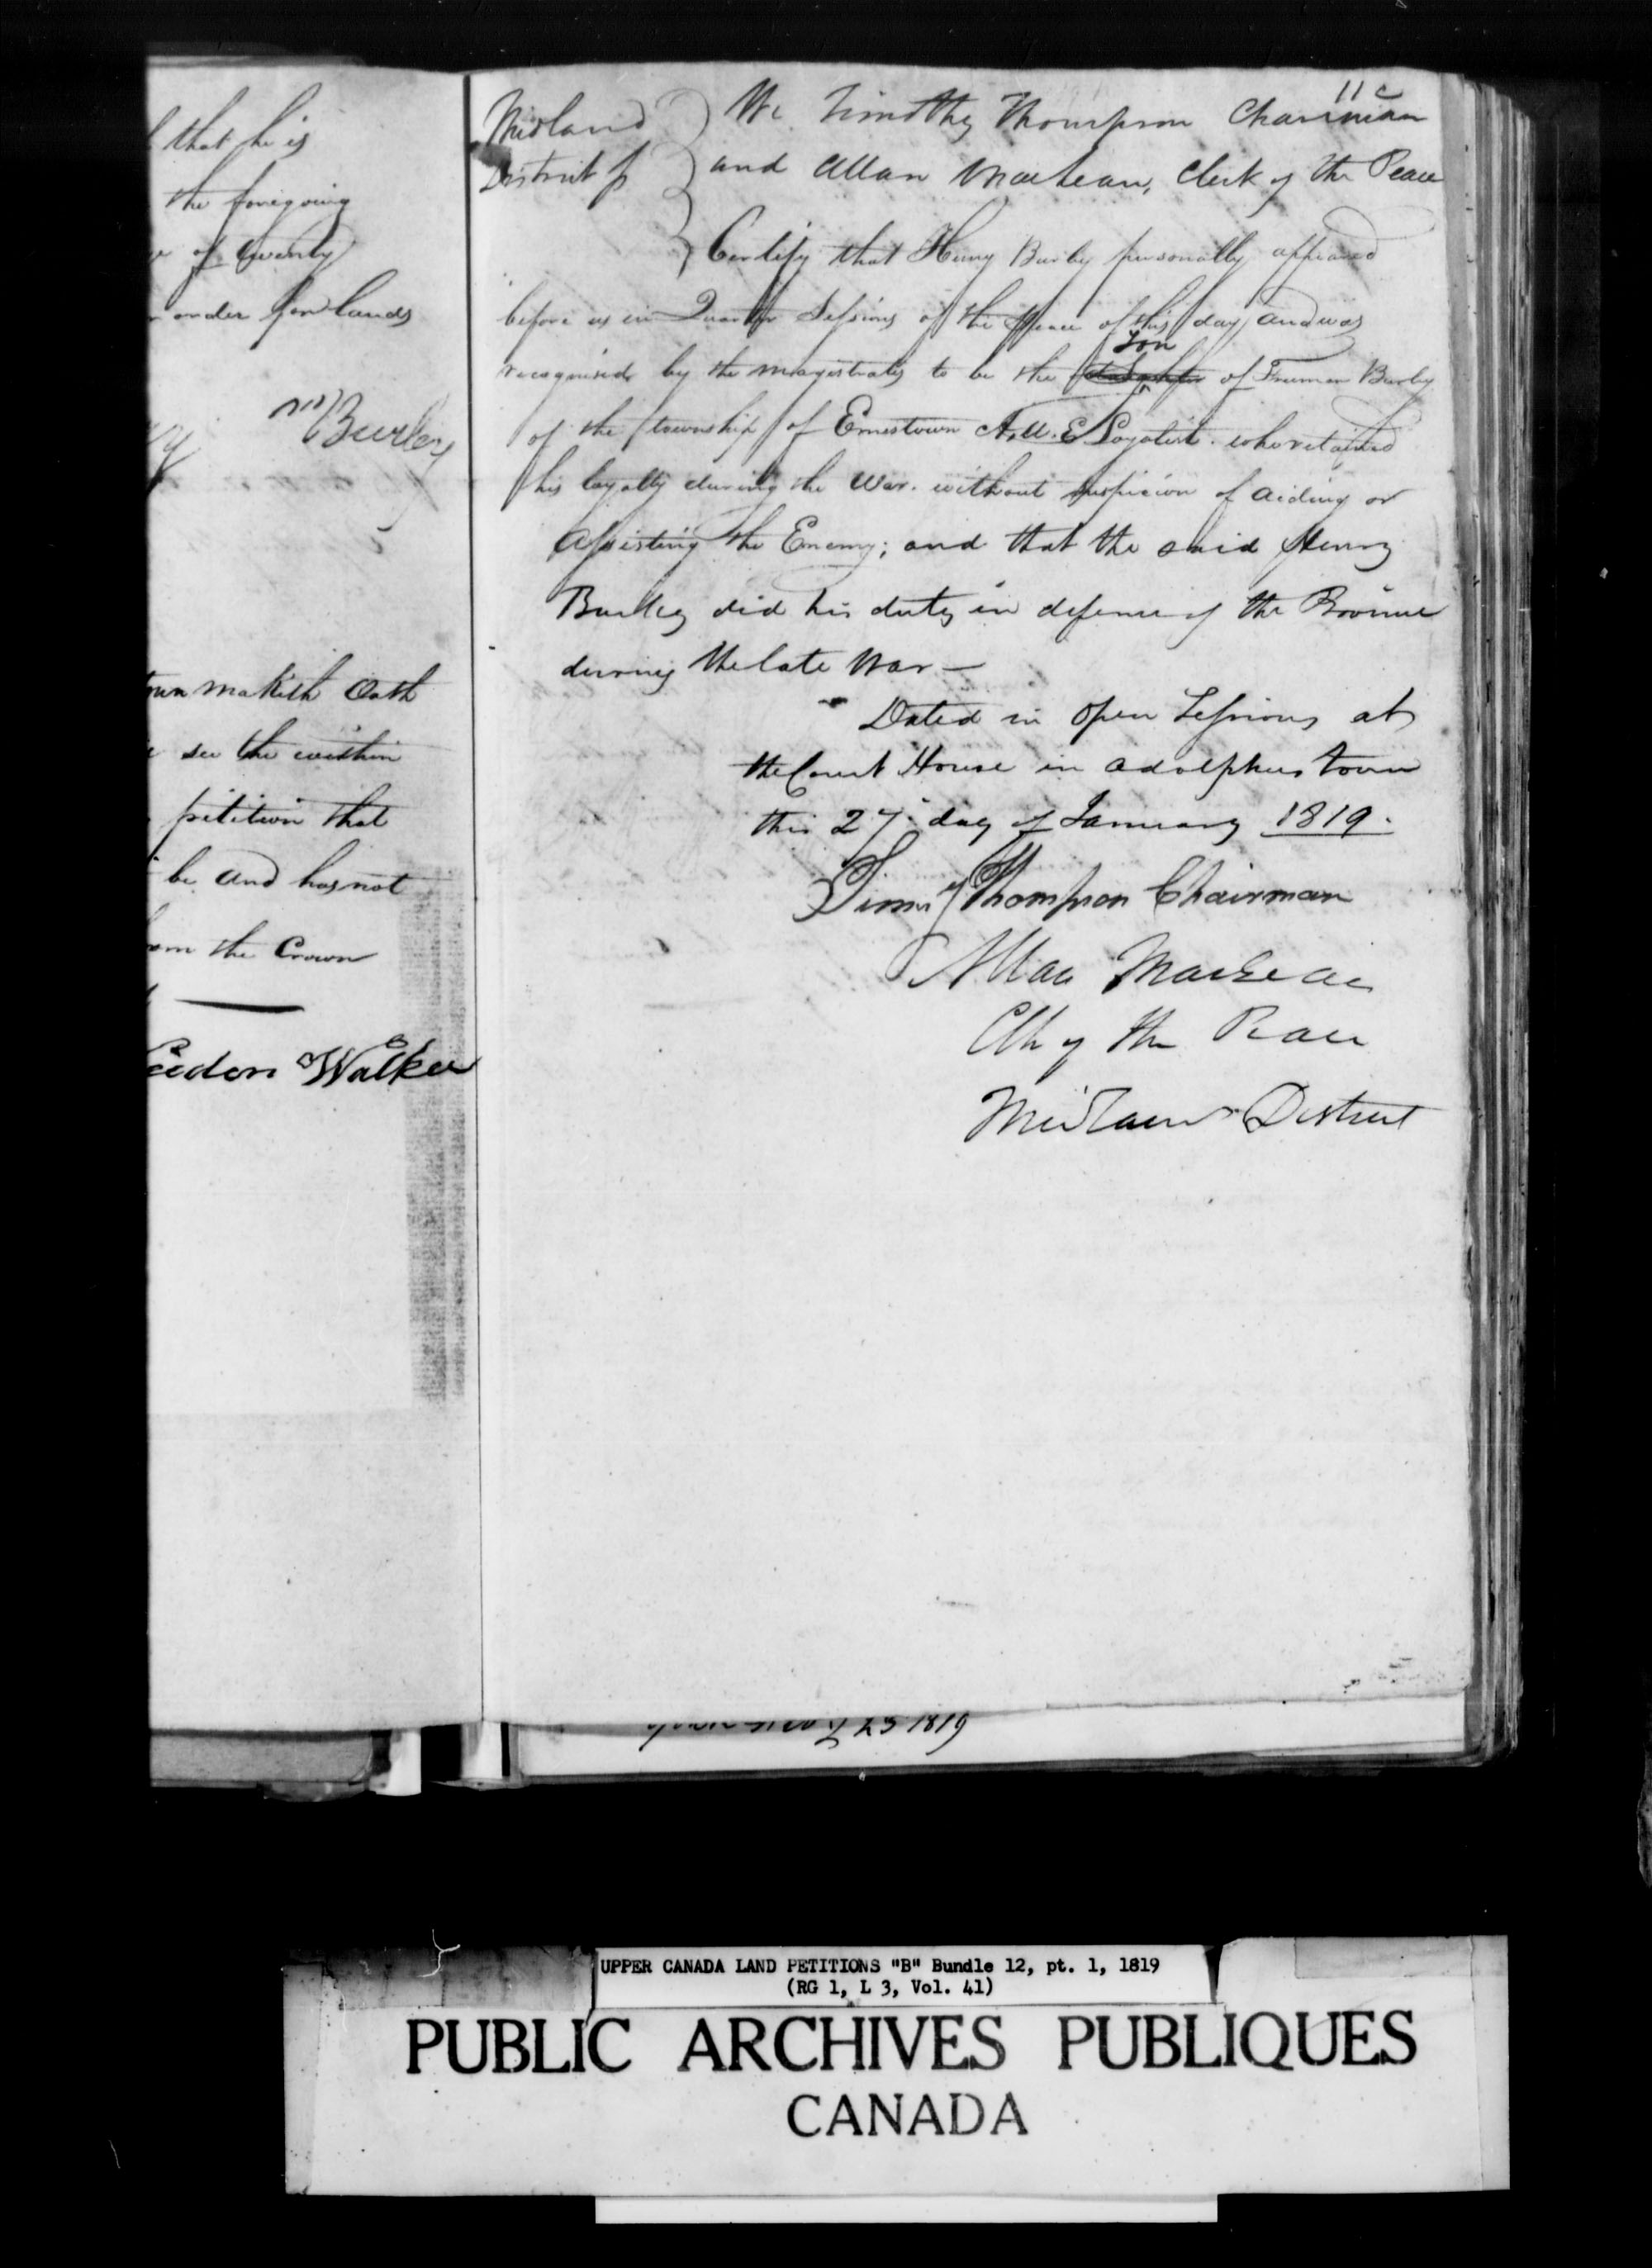 that he is
the foregoing
of twenty
order for lands
Burley
makith Oath
see the within
petition that
be and has not
the Crown
Walker
11c
Midland
District
We Timothy Thompson Chairman
and Allan MacLean, Clerk of the Peace
Certify that Henry Burley personally appeared
before us in Quarter Sessions of the Peace of this day and was
son
recognised by the magistrates to be the daughter of Freeman Burley
of the township of Ernestown A. U. E Loyalist. who retained
his loyalty during the War. without suspicion of aiding or
Assisting the Enemy; and that the said Henry
Burley did his duty in defence of the Province
during the late War —
Dated in Open Sessions at
the Court House in Adolphustown
this 27 day of January 1819.
Timy Thompson Chairman
Allan MacLean
Clk of the Peace
Midland District
25 1819
UPPER CANADA LAND PETITIONS "B" Bundle 12, pt. 1, 1819
(RG 1, L 3, Vol. 41)
PUBLIC ARCHIVES PUBLIQUES
CANADA